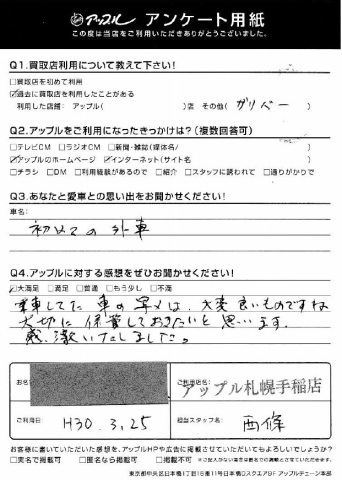 アップル アンケート用紙
この度は当店をご利用いただきありがとうございました。
Q1.買取店利用について教えて下さい!
□買取店を初めて利用
☑過去に買取店を利用したことがある
利用した店舗: アップル( )店 その他( ガリバー )
Q2.アップルをご利用になったきっかけは?(複数回答可)
□テレビCM □ラジオCM □新聞・雑誌(媒体名/ )
☑アップルのホームページ ☑インターネット(サイト名 )
□チラシ □DM □利用経験があるので □紹介 □スタッフに誘われて □通りがかりで
Q3.あなたと愛車との思い出をお聞かせください!
車名:
初めての外車
Q4.アップルに対する感想をぜひお聞かせください!
☑大満足 □満足 □普通 □もう少し □不満
車の写メは、大変良いものですね
大切に保管しておきたいと思います。
感激いたしました。
お名
ご利用店名:
アップル札幌手稲店
ご利用日
H30.3.25
担当スタッフ名:
西條
お客様に書いていただいた感想を、アップルHPや広告に掲載させていただいてもよろしいでしょうか?
□実名で掲載可 □匿名なら掲載可 □掲載不可
東京都中央区日本橋1丁目16番11号日本橋Dスクエア9F アップルチェーン本部